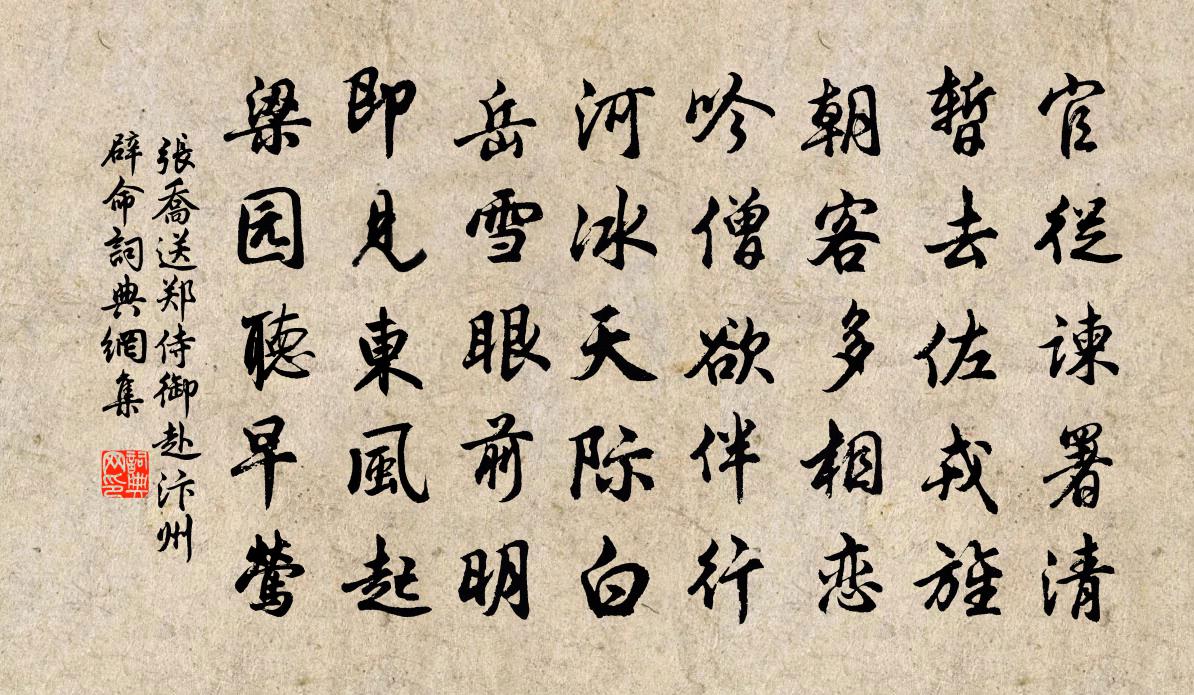 官從諫署清
暫去佐戎旌
朝客多相恋
吟僧欲伴行
河冰天际白
岳雪眼前明
即見東風起
梁园聽早鶯
張喬送郑侍御赴汴州
辟命詞典網集
詞典网印